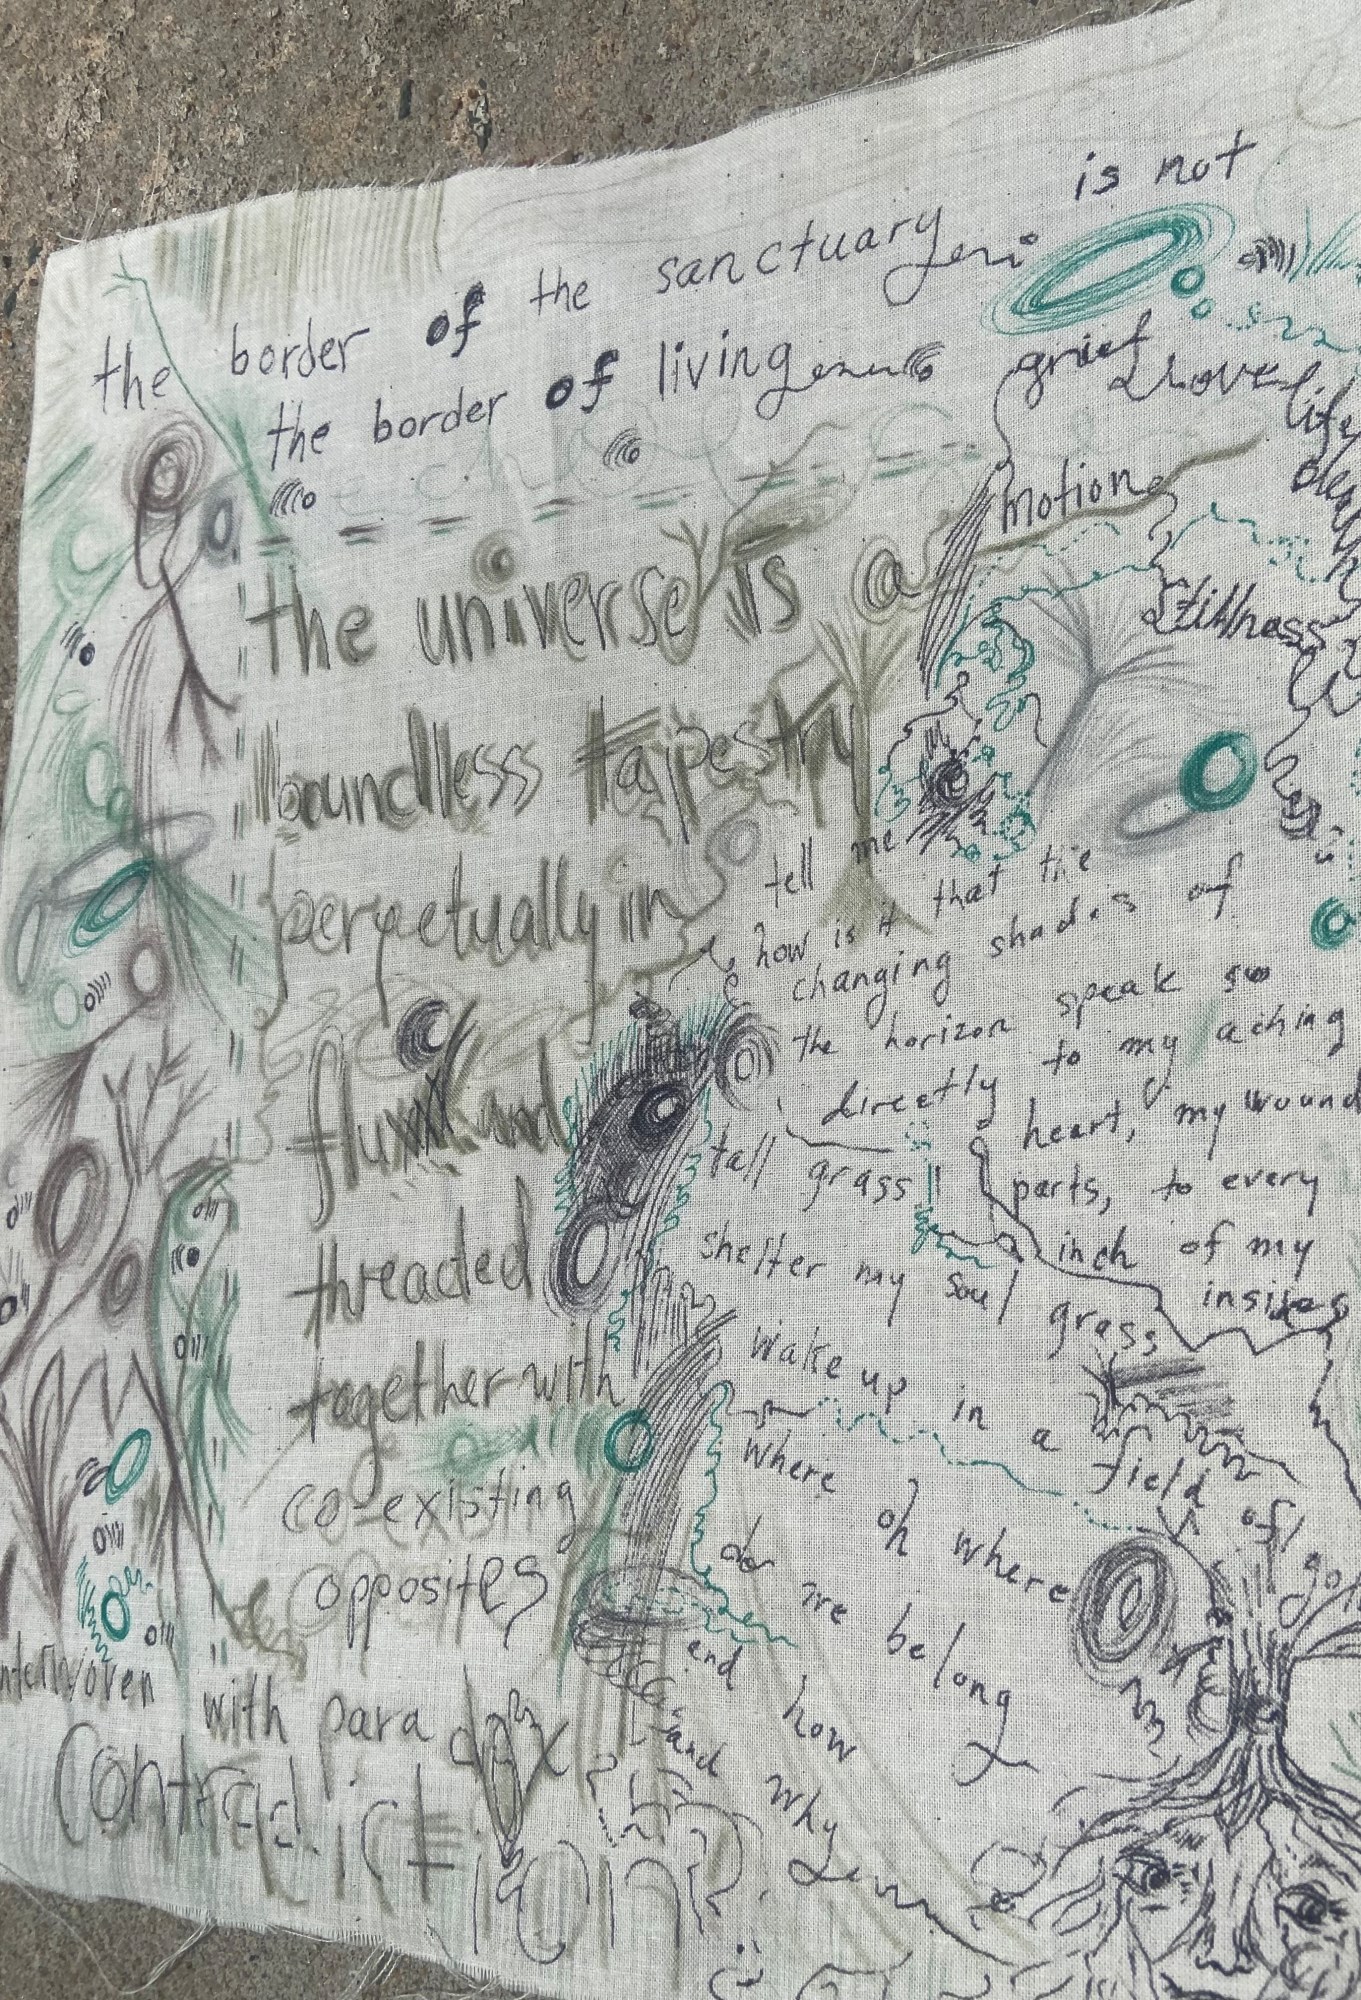 the border of the sanctuary is not
the border of living
grief
& love life
death
motion
stillness
the universe is a
boundless tapestry
perpetually in
flux and
threaded
together with
co-existing
opposites
interwoven with paradox
contradiction
tell me
how is it that the
changing shades of
the horizon speak so
directly to my aching
heart, my wound
parts, to every
inch of my
insides
tall grass
shelter my soul grass
wake up in a field of gol
where oh where
do we belong
end how
and why